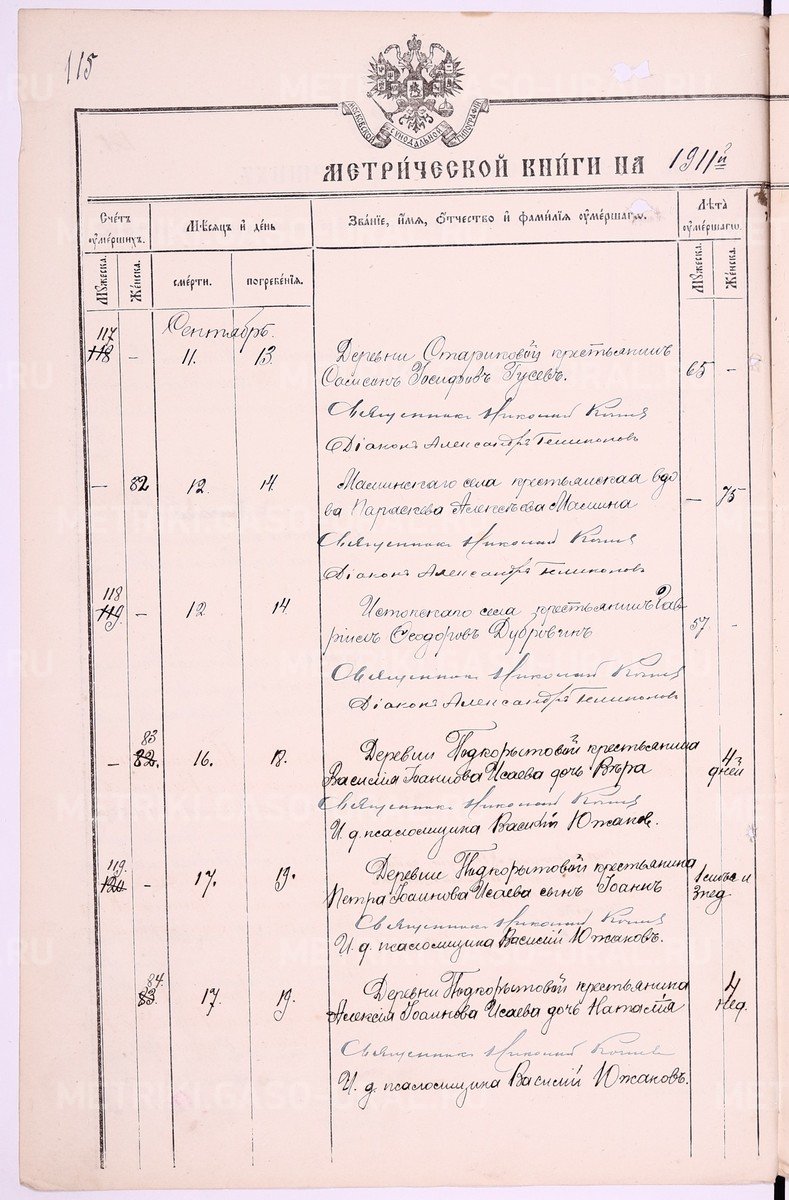 115
МОСКОВСКОЙ СѴНОДАЛЬНОЙ ТИПОГРАФІИ
МЕТРИ́ЧЕСКОЙ КНИ́ГИ НА 1911й
Счетъ оумершихъ.
Мѣсяцъ и день
Званіе, имя, отчество и фамилія оумершагѡ.
Лѣта оумершагѡ.
Мꙋжеска. Женска. смерти. погребенія. Мꙋжеска. Женска.
Сентябрь.
117
118 – 11. 13. Деревни Стариковой крестьянинъ
Самсонъ Іосифовъ Гусевъ. 65 –
Священникъ Николай
Діаконъ Александръ
– 82 12. 14. Машинскаго села крестьянская вдо
ва Параскева Алексѣева Машина – 75
Священникъ Николай
Діаконъ Александръ
118
119. – 12. 14 Истокскаго села крестьянинъ Гав-
ріилъ Ѳеодоровъ Дубровинъ 57 –
Священникъ Николай
Діаконъ Александръ
83
– 82. 16. 18. Деревни Подкорытовой крестьянина
Василія Іоаннова Исаева дочь Вѣра 4 дней
Священникъ Николай
И. д. псаломщика Василій Южаковъ.
119.
120 – 17. 19. Деревни Подкорытовой крестьянина
Петра Іоаннова Исаева сынъ Іоаннъ 1 мѣс. и 3 нед.
Священникъ Николай
И. д. псаломщика Василій Южаковъ.
84.
83. 17. 19. Деревни Подкорытовой крестьянина
Алексія Іоаннова Исаева дочь Наталія 4 нед.
Священникъ Николай
И. д. псаломщика Василій Южаковъ.